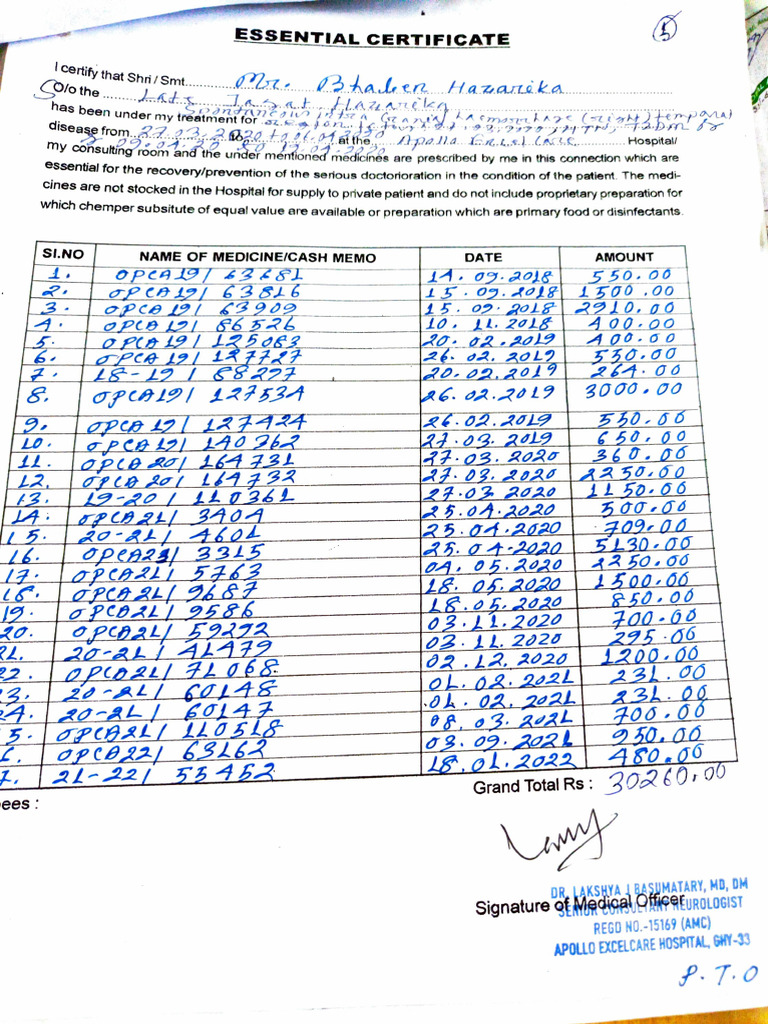 5
ESSENTIAL CERTIFICATE
I certify that Shri / Smt. Mr. Bhaben Hazarika
S/o the Late Hazarika
has been under my treatment for Spontaneous intra Cranial haemorrhage (right) temporal
disease from 27.03.2020 to at the Apollo Excelcare Hospital/
my consulting room and the under mentioned medicines are prescribed by me in this connection which are
essential for the recovery/prevention of the serious doctorioration in the condition of the patient. The medi-
cines are not stocked in the Hospital for supply to private patient and do not include proprietary preparation for
which chemper subsitute of equal value are available or preparation which are primary food or disinfectants.
SI.NO NAME OF MEDICINE/CASH MEMO DATE AMOUNT
1. OPCA19/ 63681 14.09.2018 550.00
2. OPCA19/ 63816 15.09.2018 1500.00
3. OPCA19/ 63909 15.09.2018 2910.00
4. OPCA19/ 86526 10.11.2018 400.00
5. OPCA19/ 125083 20.02.2019 400.00
6. OPCA19/ 127727 26.02.2019 550.00
7. 18-19/ 88297 20.02.2019 264.00
8. OPCA19/ 127534 26.02.2019 3000.00
9. OPCA19/ 127424 26.02.2019 550.00
10. OPCA19/ 140262 27.03.2019 650.00
11. OPCA20/ 164731 27.03.2020 360.00
12. OPCA20/ 164732 27.03.2020 2250.00
13. 19-20/ 110361 27.03.2020 1150.00
14. OPCA21/ 3404 25.04.2020 500.00
15. 20-21/ 4601 25.04.2020 709.00
16. OPCA21/ 3315 25.04.2020 5130.00
17. OPCA21/ 5763 04.05.2020 2250.00
18. OPCA21/ 9687 18.05.2020 1500.00
19. OPCA21/ 9586 18.05.2020 850.00
20. OPCA21/ 59292 03.11.2020 700.00
21. 20-21/ 41479 03.11.2020 295.00
22. OPCA21/ 71068 02.12.2020 1200.00
23. 20-21/ 60148 01.02.2021 231.00
24. 20-21/ 60147 01.02.2021 231.00
5. OPCA21/ 110518 08.03.2021 700.00
6. OPCA22/ 63162 03.09.2021 950.00
7. 21-22/ 55452 18.01.2022 480.00
Grand Total Rs : 30260.00
ees :
Signature of Medical Officer
DR. LAKSHYA J BASUMATARY, MD, DM
SENIOR CONSULTANT NEUROLOGIST
REGD NO.-15169 (AMC)
APOLLO EXCELCARE HOSPITAL, GHY-33
P.T.O